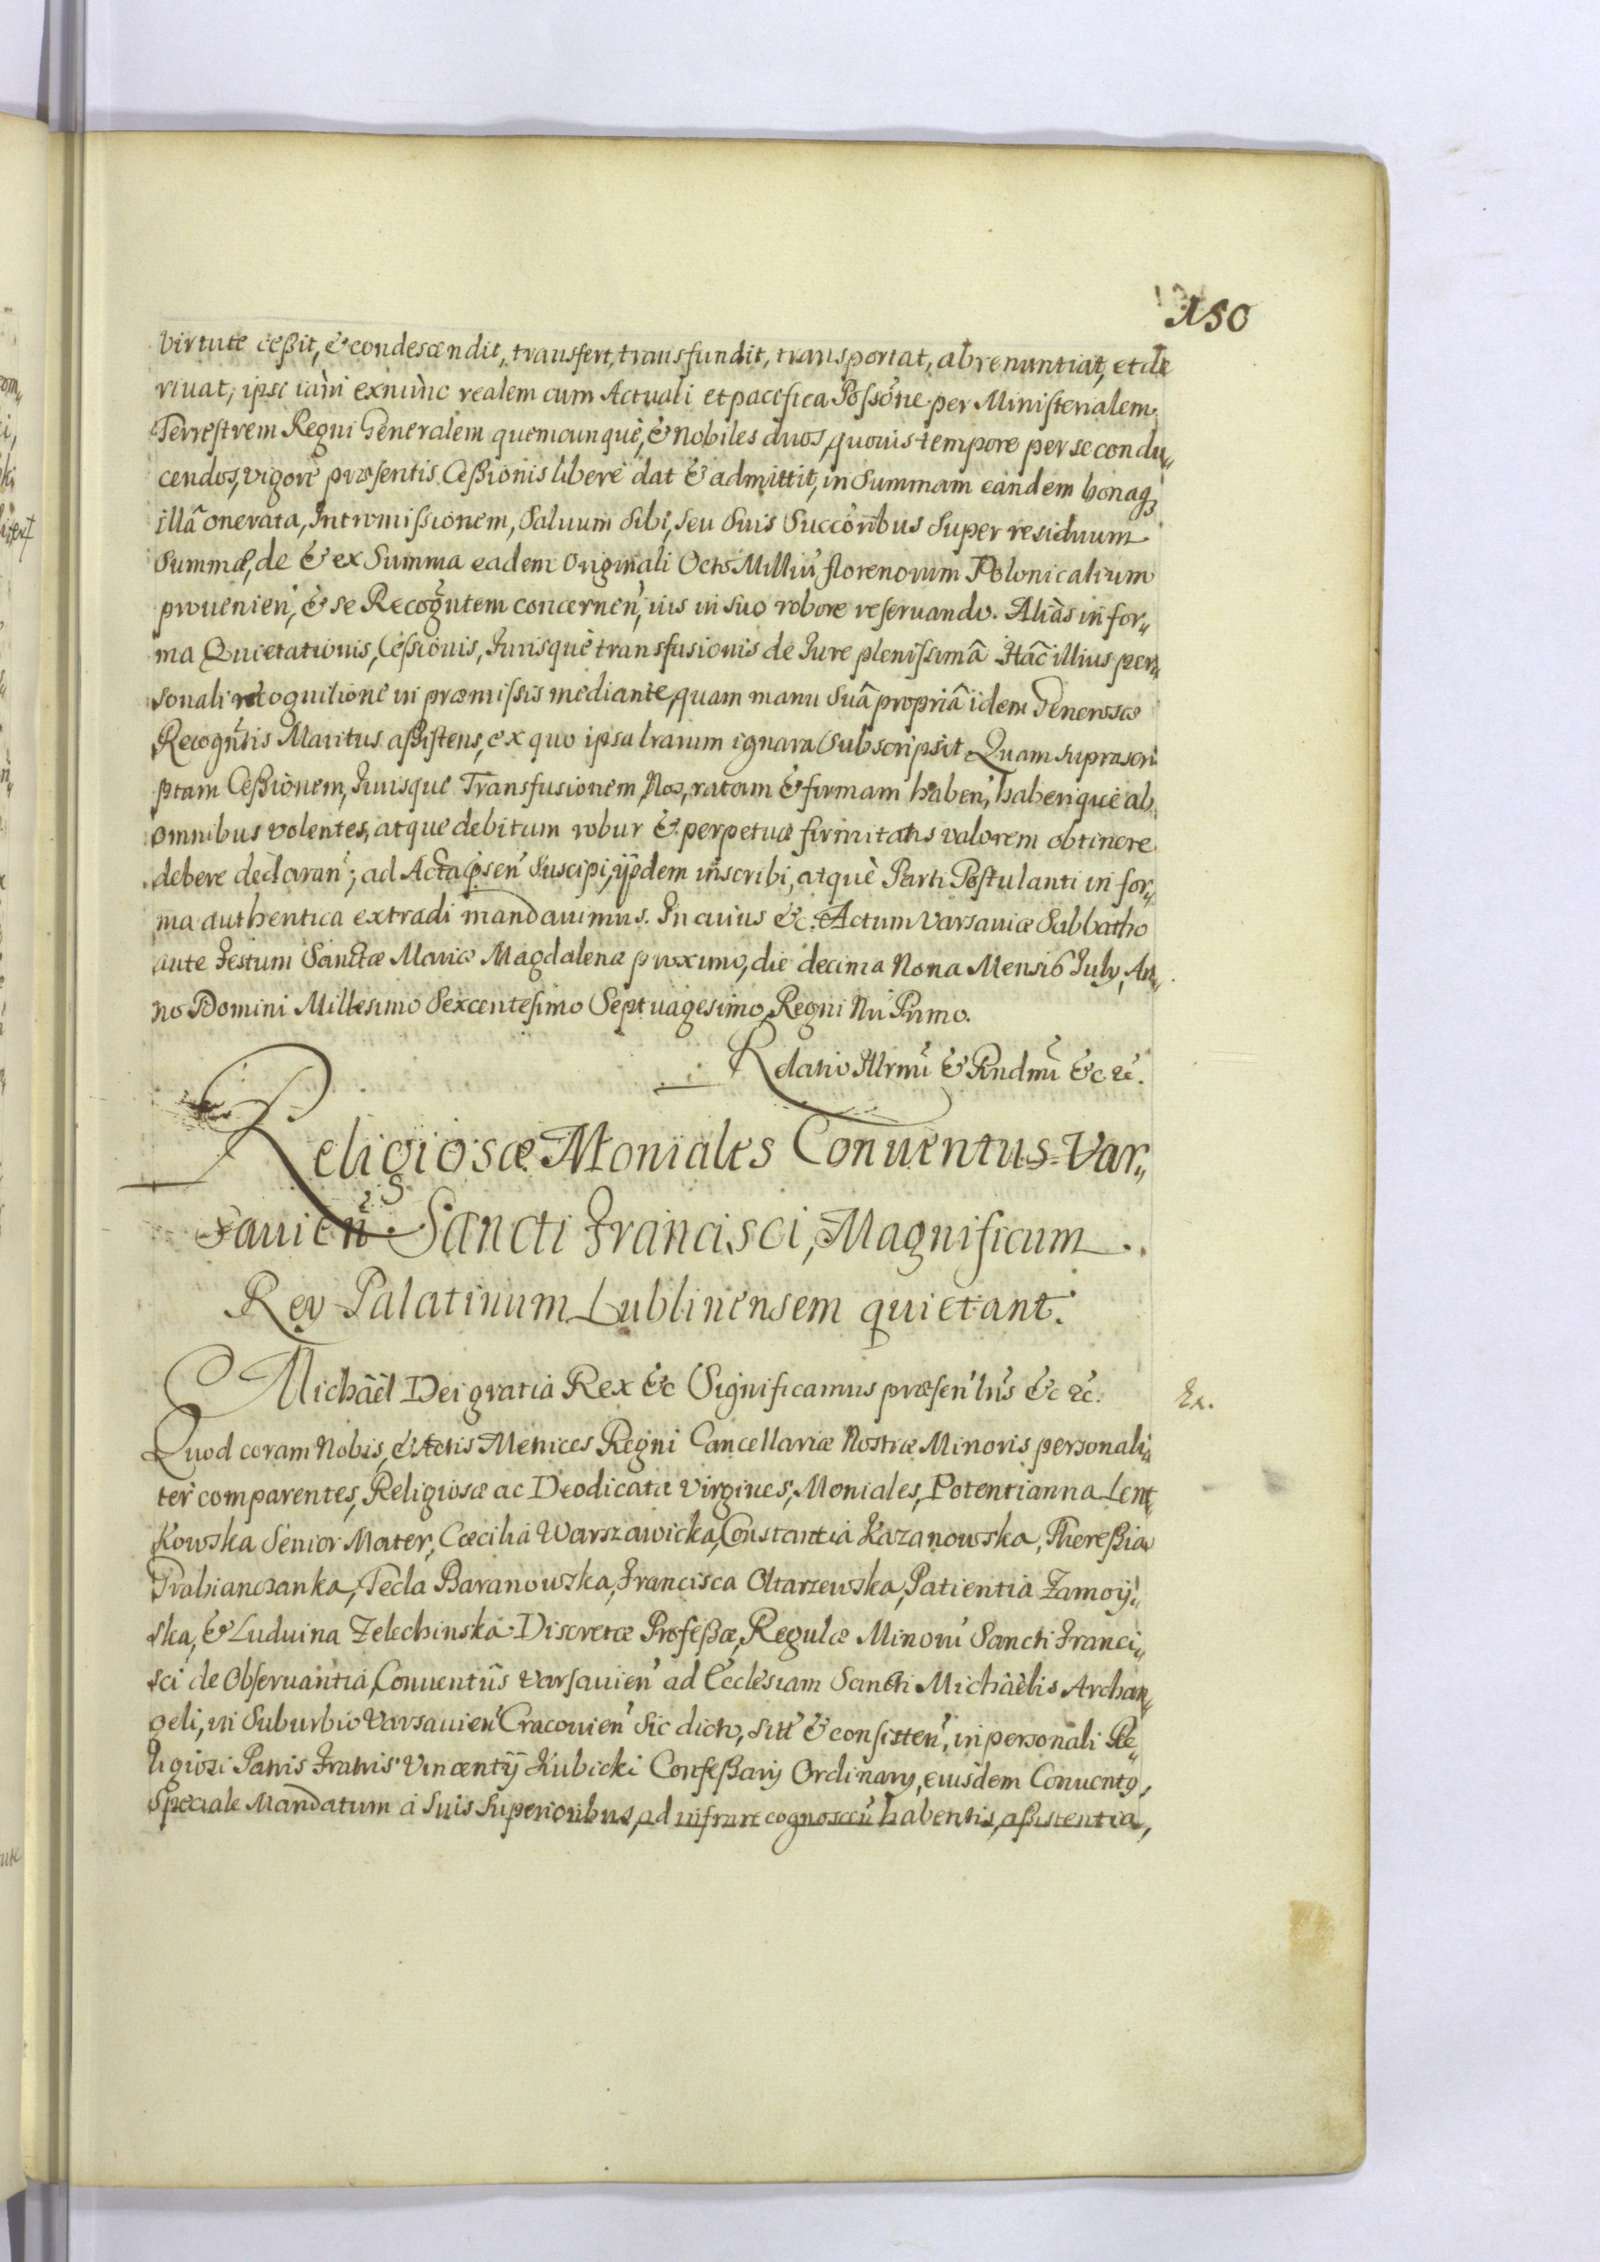 150
virtute ceßit, & condescendit, transfert, transfundit, transportat, abrenuntiat, et de
rivat; ipse iam exnunc realem cum Actuali et pacifica Possõne per Ministerialem
Terrestrem Regni Generalem quemcunquè, & Nobiles duos, quovis tempore per se condu„
cendos, vigore præsentis Ceßionis libere dat & admittit, in Summam eandem bonaq₃
illâ onerata, Intromissionem, Salvum Sibi, seu Suis Succõribus Super residuum
Summæ, de & ex Summa eadem Originali Octo Milliũ florenorum Polonicalium
provenien̉, & se Recogñtem concernen̉, ius in suo robore reservando. Aliàs in for„
ma Quietationis, Cessionis, Iurisquè transfusionis de Iure plenissimâ Hâc illius per„
sonali recognitione in præmissis mediante, quam manu Suâ propriâ idem Generosæ
Recogñtis Maritus aßistens, ex quo ipsa lrarum ignara Subscripsit. Quam suprascri
ptam Ceßionem, Iurisque Transfusionem Nos, ratam & firmam haben̉, haberiquè ab
omnibus volentes, atque debitum robur & perpetuæ firmitatis valorem obtinere
debere declaran̉; ad Acta p̃sen̉ Suscipi, ijsdem inscribi, atquè Parti Postulanti in for„
ma authentica extradi mandavimus. In cuius &c. Actum Varsaviæ Sabbatho
ante Festum Sanctæ Mariæ Magdalenæ proximo, die decima Nona Mensis July, An„
no Domini Millesimo Sexcentesimo Septuagesimo, Regni Nri Primo.
Relatio Illrmi & Rndmi &c &c.
Religiosæ Moniales Conventus Var„
savien̉ S Sancti Francisci, Magnificum
Rey Palatinum Lublinensem quietant.
Michâêl Dei gratia Rex &c Significamus præsen̉ lris &c &c.
Quod coram Nobis, & Actis Metrices Regni Cancellariæ Nostræ Minoris personali„
ter comparentes, Religiosæ ac Deodicatæ Virgines, Moniales, Potentianna Lent„
kowska Senior Mater, Cæcilia Warszawicka, Constantia Kazanowska, Thereßia
Trabianczanka, Tecla Baranowska, Francisca Oltarzewska, Patientia Zamoy„
ska, & Luduina Zelechinska Discretæ Profeßæ, Regulæ Minorũ Sancti Franci„
sci de Observantia, Conventûs Varsavien̉ ad Ecclesiam Sancti Michâêlis Archan„
geli, in Suburbio Varsavien̉ Cracovien̉ Sic dicto, sitĩ & consisten̉, in personali Re„
ligiosi Patris Fratris Vincentij Kubicki Confeßarij Ordinarij, eiusdem Convent9,
Speciale Mandatum à Suis Superioribus, ad infrare cognoscen̉ habentis, aßistentia,
Ex.